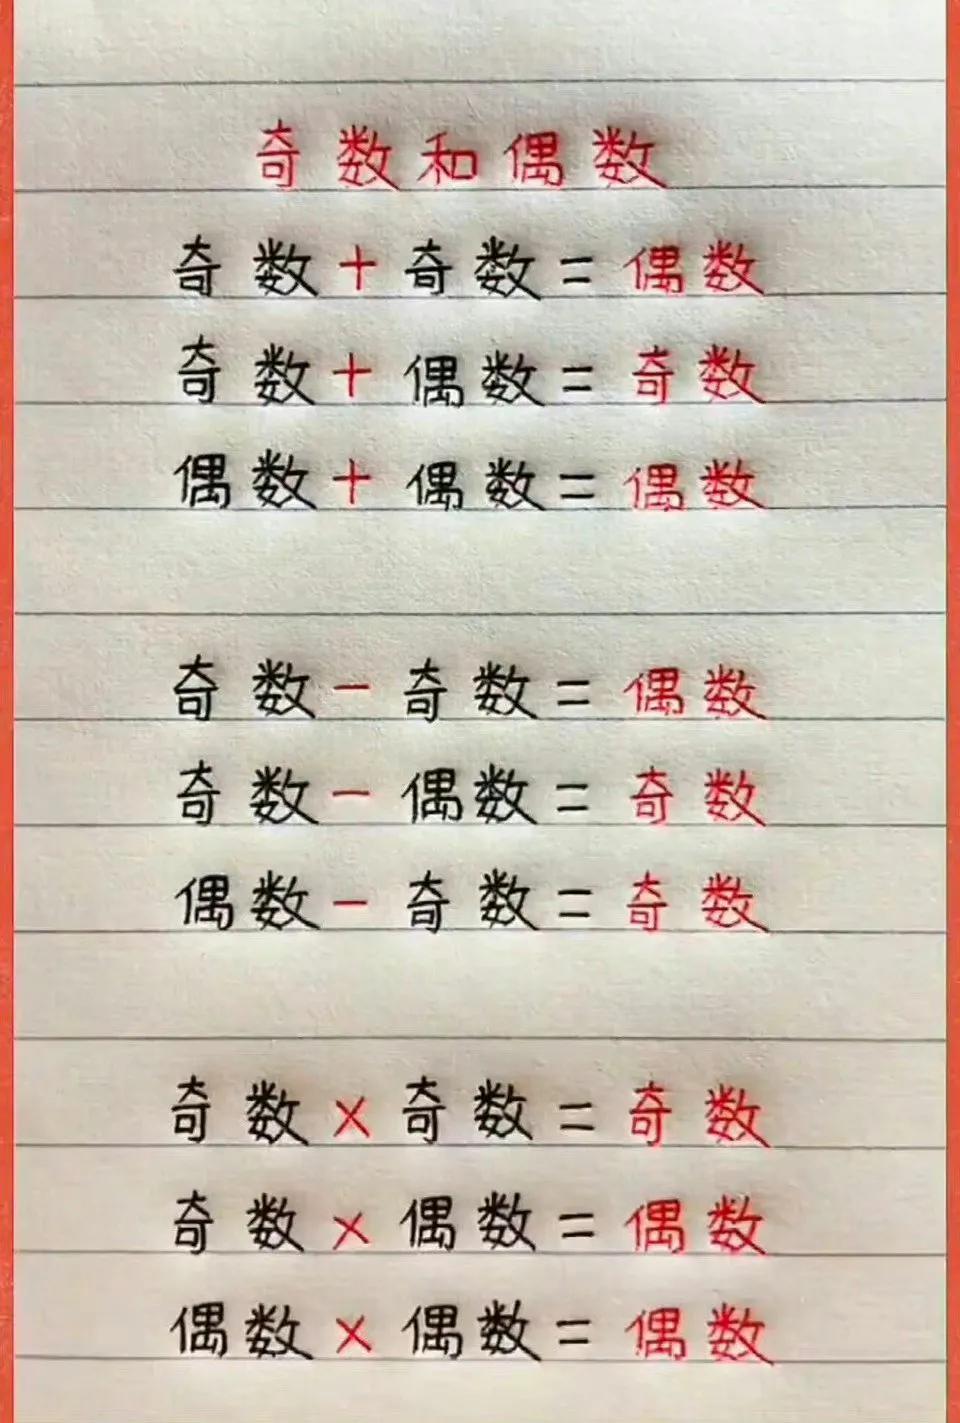 奇数和偶数
奇数+奇数=偶数
奇数+偶数=奇数
偶数+偶数=偶数
奇数-奇数=偶数
奇数-偶数=奇数
偶数-奇数=奇数
奇数×奇数=奇数
奇数×偶数=偶数
偶数×偶数=偶数